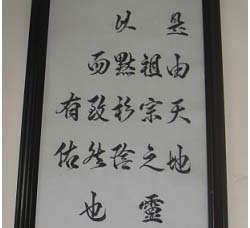 是由天地
祖宗之靈
以默相陰
而致然也
有佑